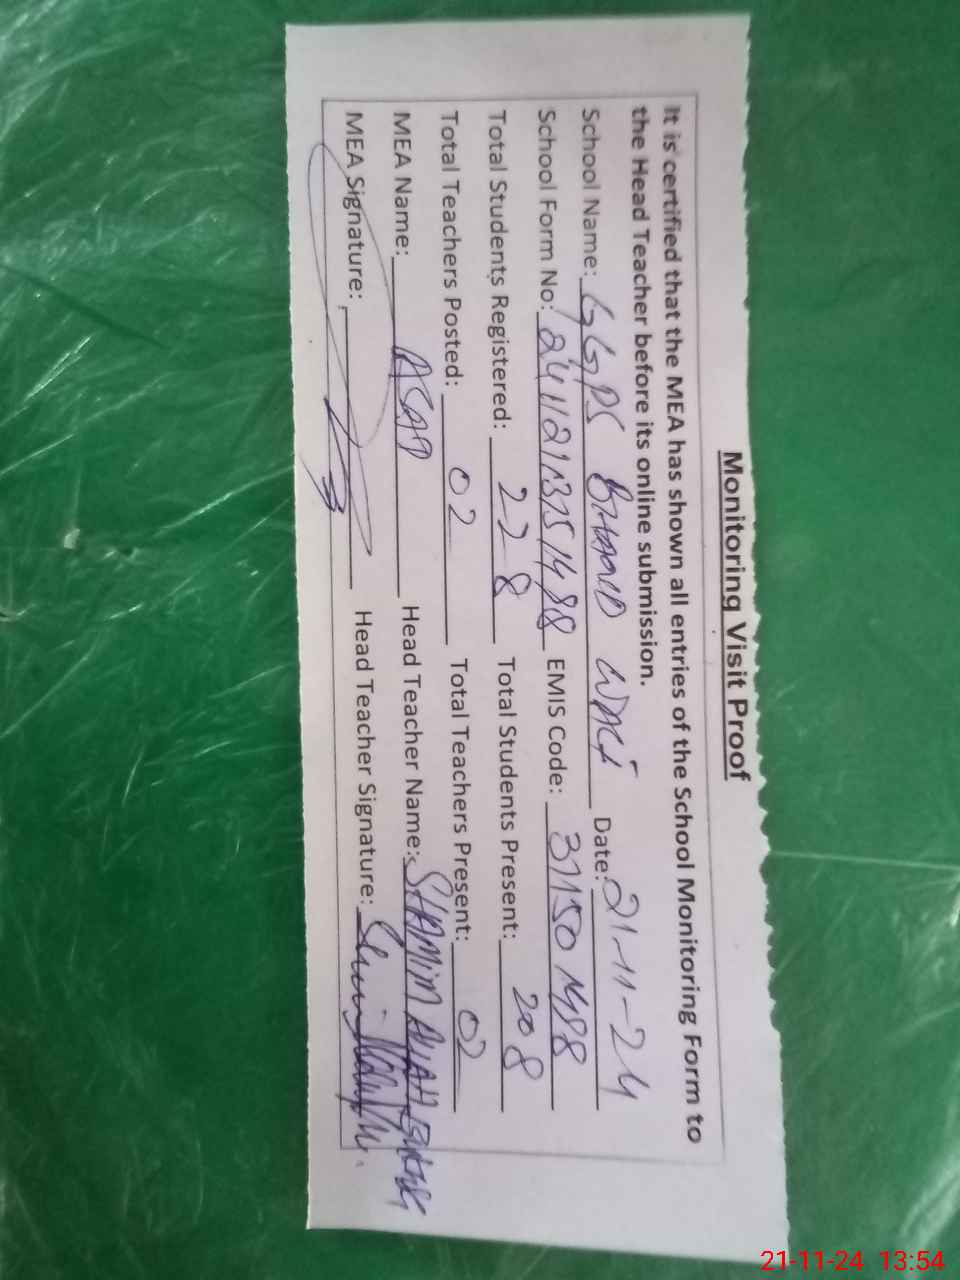 Monitoring Visit Proof
It is certified that the MEA has shown all entries of the School Monitoring Form to
the Head Teacher before its online submission.
School Name: GGPS BHAOUD WACI Date: 21-11-24
School Form No: 24112113151488 EMIS Code: 31150488
Total Students Registered: 228 Total Students Present: 208
Total Teachers Posted: 02 Total Teachers Present: 02
MEA Name: ASAD Head Teacher Name: SHAMIM
MEA Signature: Head Teacher Signature:
21-11-24 13:54